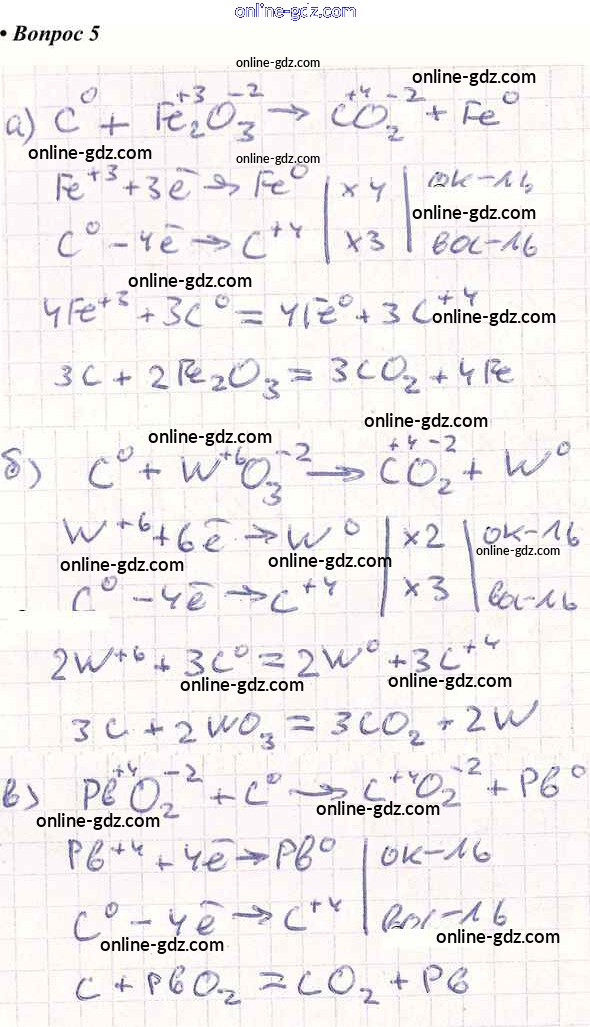 online-gdz.com
• Вопрос 5
online-gdz.com
online-gdz.com
а) C⁰ + Fe₂⁺³O₃⁻² → C⁺⁴O₂⁻² + Fe⁰
online-gdz.com
online-gdz.com
Fe⁺³ + 3ē → Fe⁰ | ×4 | ок-ль
online-gdz.com
C⁰ - 4ē → C⁺⁴ | ×3 | вос-ль
online-gdz.com
4Fe⁺³ + 3C⁰ = 4Fe⁰ + 3C⁺⁴
online-gdz.com
3C + 2Fe₂O₃ = 3CO₂ + 4Fe
online-gdz.com
online-gdz.com
б) C⁰ + W⁺⁶O₃⁻² → C⁺⁴O₂⁻² + W⁰
W⁺⁶ + 6ē → W⁰ | ×2 | ок-ль
online-gdz.com
online-gdz.com
online-gdz.com
C⁰ - 4ē → C⁺⁴ | ×3 | вос-ль
2W⁺⁶ + 3C⁰ = 2W⁰ + 3C⁺⁴
online-gdz.com
online-gdz.com
3C + 2WO₃ = 3CO₂ + 2W
в) Pb⁺⁴O₂⁻² + C⁰ → C⁺⁴O₂⁻² + Pb⁰
online-gdz.com
online-gdz.com
Pb⁺⁴ + 4ē → Pb⁰ | ок-ль
C⁰ - 4ē → C⁺⁴ | вос-ль
online-gdz.com
online-gdz.com
C + PbO₂ = CO₂ + Pb